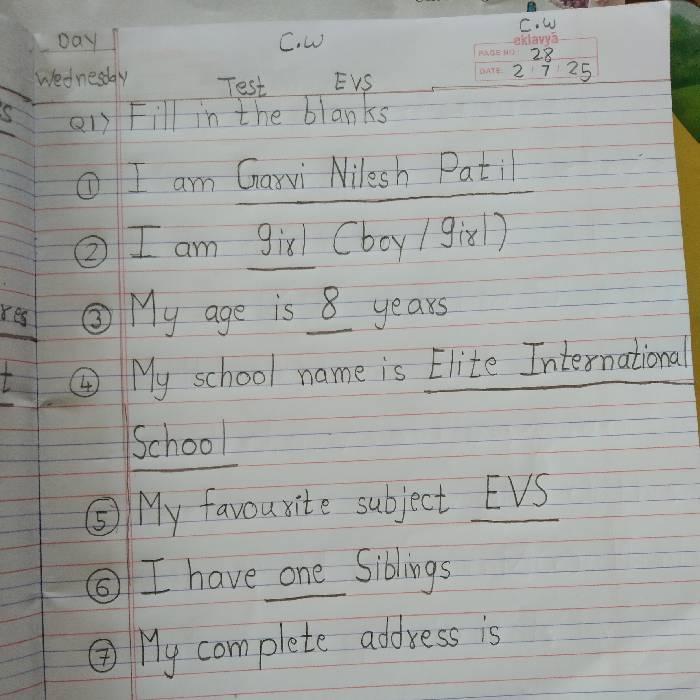 Day C.W C.W
eklavya
PAGE NO: 28
DATE: 2/7/25
Wednesday
Test EVS
Q1) Fill in the blanks
① I am Garvi Nilesh Patil
② I am girl (boy/girl)
③ My age is 8 years
④ My school name is Elite International
School
⑤ My favourite subject EVS
⑥ I have one Siblings
⑦ My complete address is